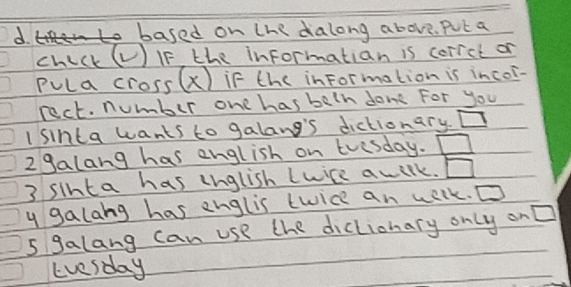 d. based on the dialong above. Put a
check (✓) IF the informatian is corrct or
Put a cross (x) iF the information is incor-
rect. number one has beln done For you
1 sinta wants to galang's dictionary. □
2 galang has english on tuesday. □
3 sinta has english twice a week. □
4 galang has englis twice an week. □
5 galang can use the dictionary only on □
tuesday